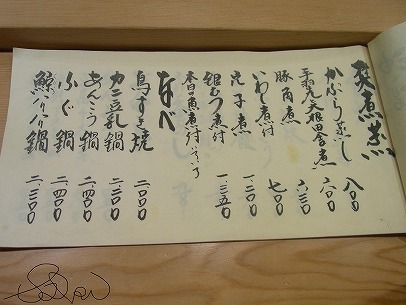 焚煮蒸
かぶら蒸し 八〇〇
手羽先と大根田舎煮 六〇〇
豚角煮 六三〇
いわし煮付 七〇〇
穴子煮 一三〇〇
銀むつ煮付 一三五〇
本日の魚煮付いろいろ
なべ
鳥すき焼 二〇〇〇
カニ豆乳鍋 二三〇〇
あんこう鍋 二四〇〇
ふぐ鍋 二四〇〇
鯨ハリハリ鍋 二三〇〇